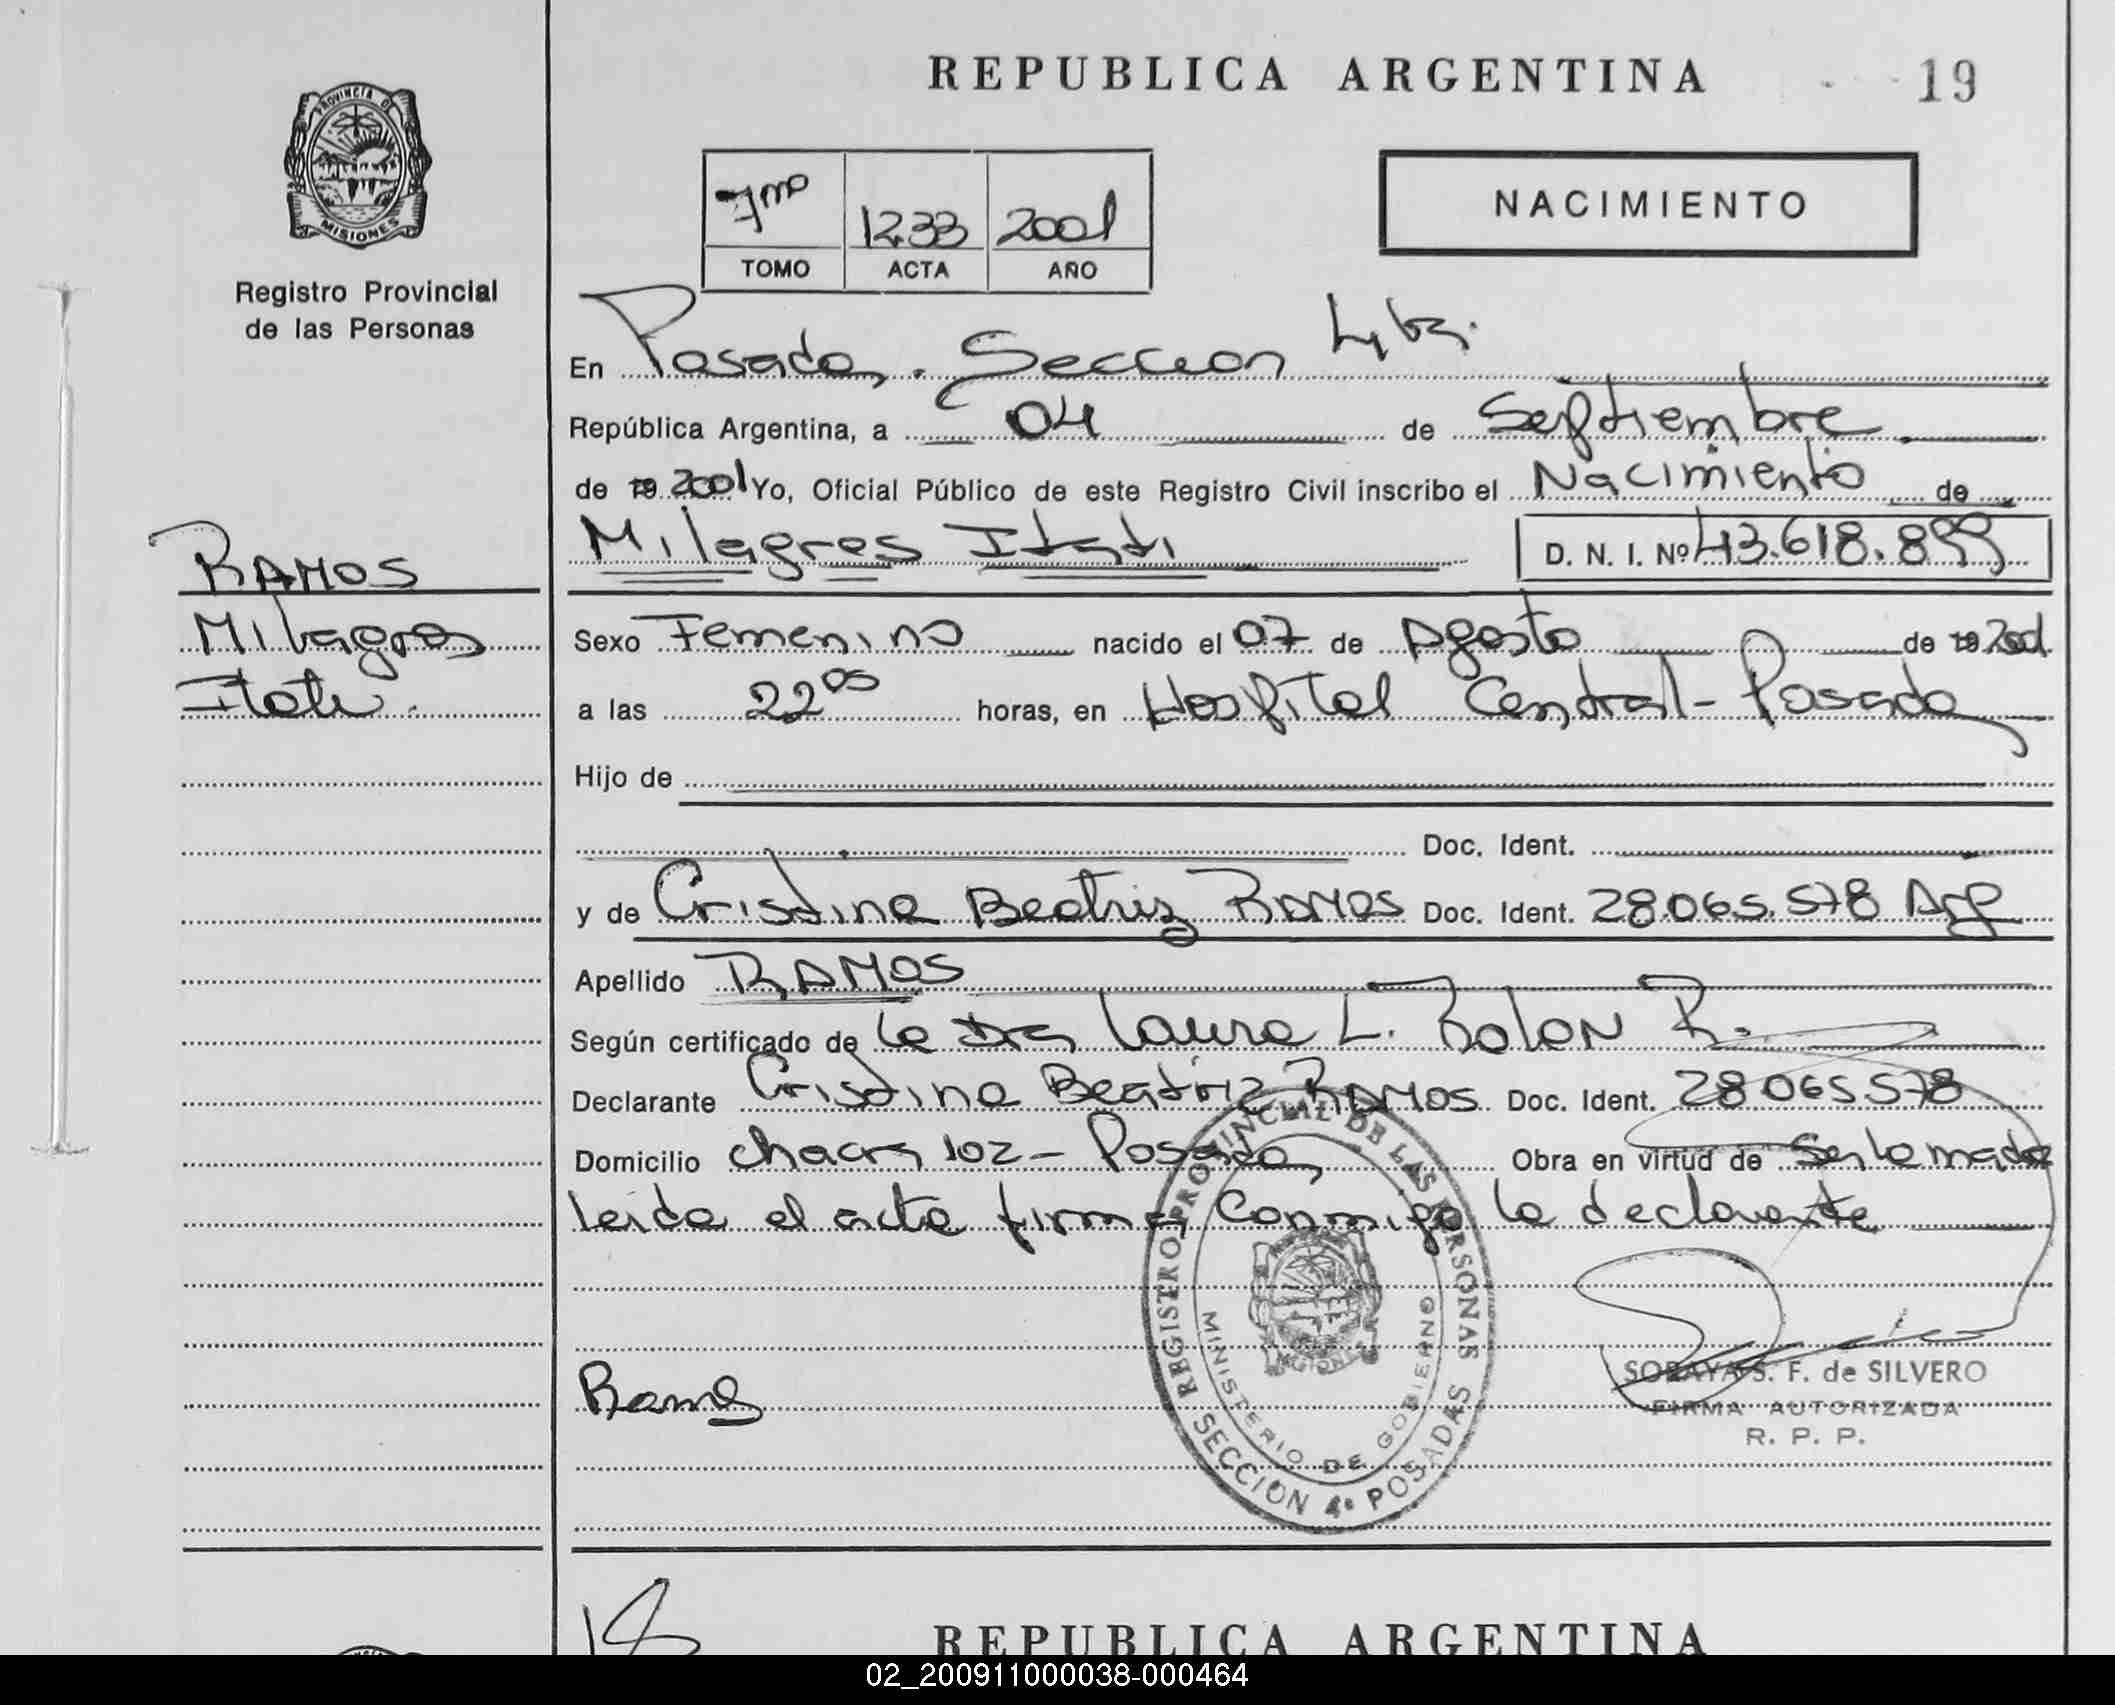 REPUBLICA ARGENTINA
19
PROVINCIA DE
MISIONES
Registro Provincial
de las Personas
7mo 1233 2001
TOMO ACTA AÑO
NACIMIENTO
En Posadas. Seccion 4ta.
República Argentina, a 04 de Septiembre
de 19 2001 Yo, Oficial Público de este Registro Civil inscribo el Nacimiento de
Milagros Itati D. N. I. Nº 43.618.899
RAMOS
Milagros
Itati.
Sexo Femenino nacido el 07 de Agosto de 19 2001
a las 22 05 horas, en Hospital Central - Posadas
Hijo de
Doc. Ident.
y de Cristina Beatriz RAMOS Doc. Ident. 28.065.578 Arg
Apellido RAMOS
Según certificado de la Dra Laura L. Rolon R.
Declarante Cristina Beatriz RAMOS Doc. Ident. 28 065.578
Domicilio chacra 102 - Posadas Obra en virtud de
Leida el acta firma conmigo la declarante
REGISTRO PROVINCIAL DE LAS PERSONAS
MINISTERIO DE GOBIERNO
MISIONES
SECCION 4ª POSADAS
Ramos
SORAYA S. F. de SILVERO
FIRMA AUTORIZADA
R. P. P.
REPUBLICA ARGENTINA
02_200911000038-000464